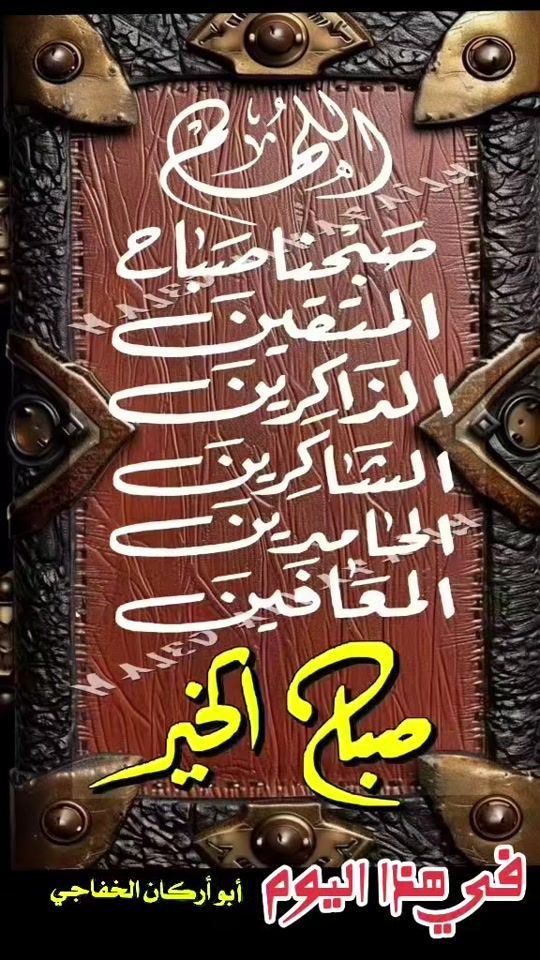 اللهم
صَبّحنا صَبَاح
المتقينَ
الذَاكِرينَ
الشَاكِرينَ
الحامدينَ
المعَافَينَ
صباح الخير
في هذا اليوم
أبو أركان الخفاجي